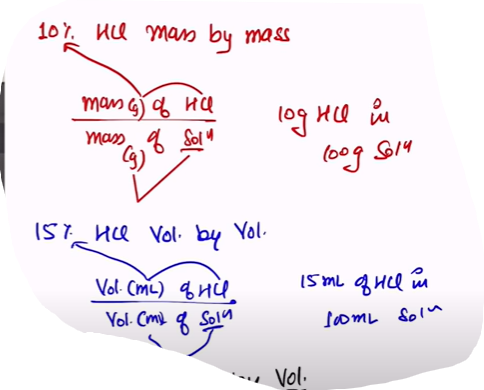 10% HCl mass by mass
mass(g) of HCl
mass(g) of Solⁿ
10g HCl in
100g Solⁿ
15% HCl Vol. by Vol.
Vol.(mL) of HCl
Vol.(mL) of Solⁿ
15mL of HCl in
100mL Solⁿ
Vol.